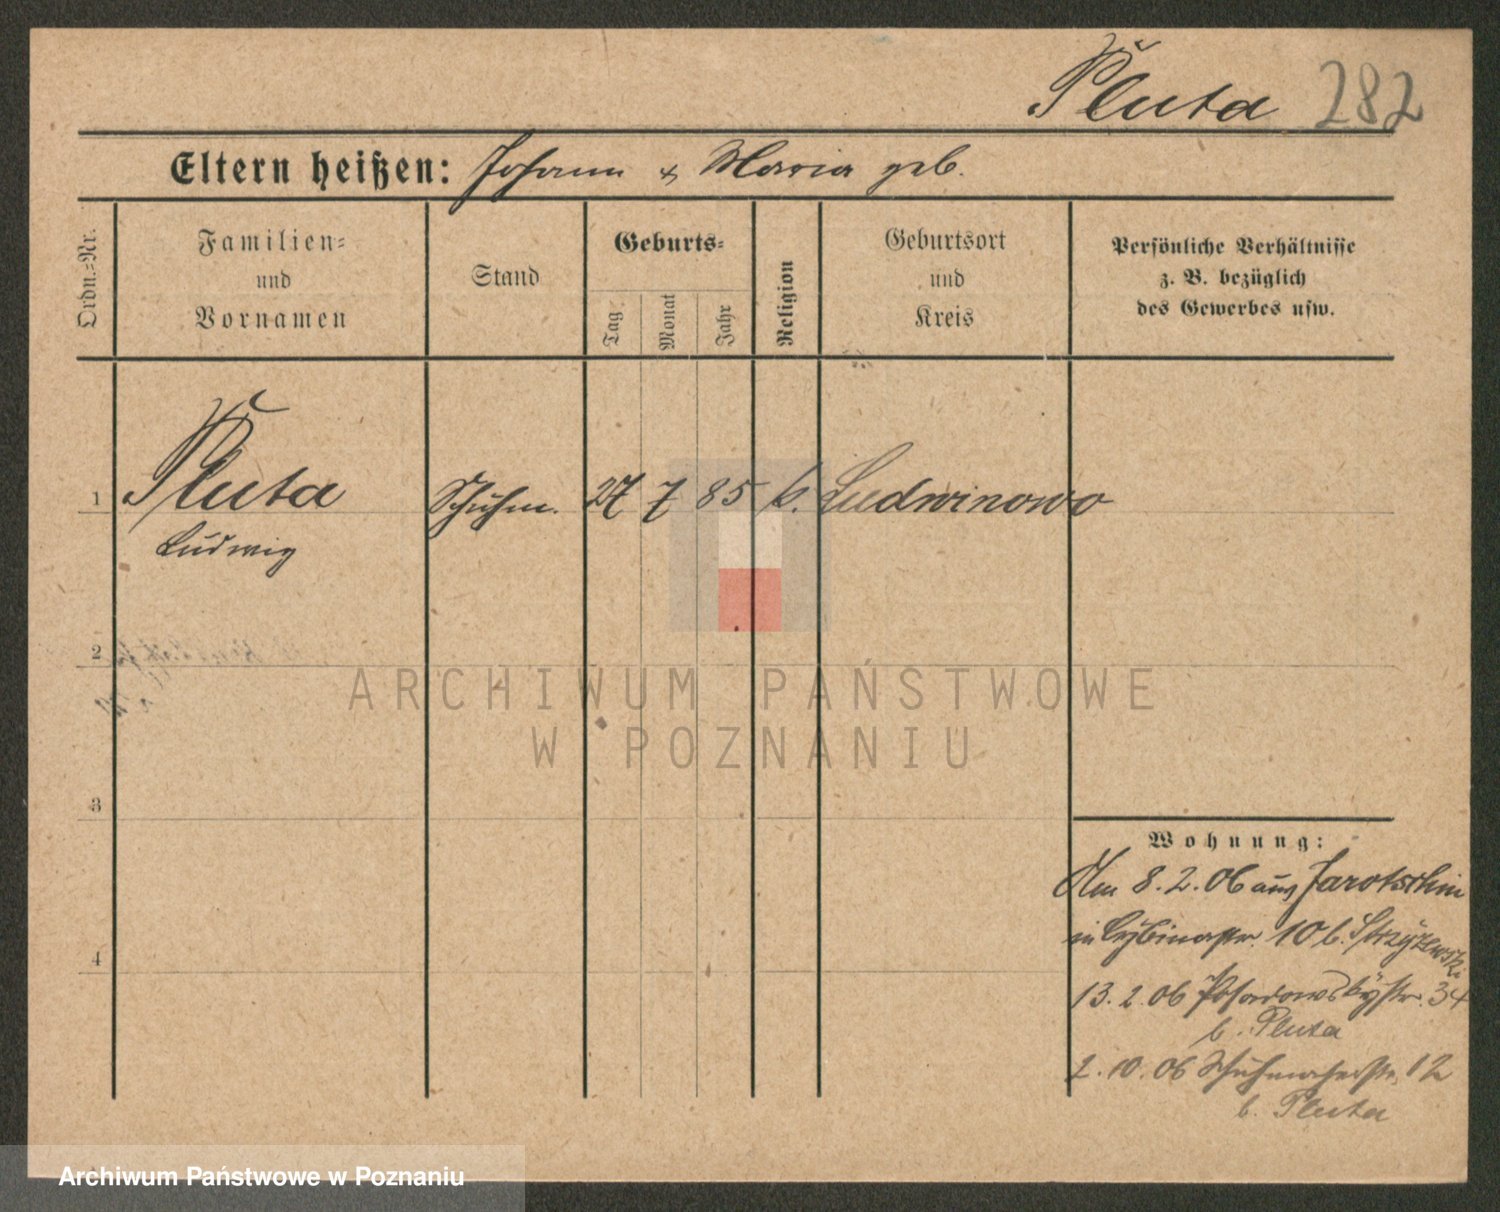 Pluta 282
Eltern heißen: Johann & Maria geb.
Ordn.=Nr.
Familien=
und
Vornamen
Stand
Geburts=
Tag
Monat
Jahr
Religion
Geburtsort
und
Kreis
Persönliche Verhältnisse
z. B. bezüglich
des Gewerbes usw.
1 Pluta Schuhm. 27 7 85 k. Ludwinowo
Ludwig
2
ARCHIWUM PAŃSTWOWE
W POZNANIU
3
Wohnung:
Am 8. 2. 06 aus Jarotschin
in Cybinastr. 10 b. Stryzewski
4
13. 2. 06 Posadowskystr. 34
b. Pluta
2. 10. 06 Schuhmacherstr. 12
b. Pluta
Archiwum Państwowe w Poznaniu